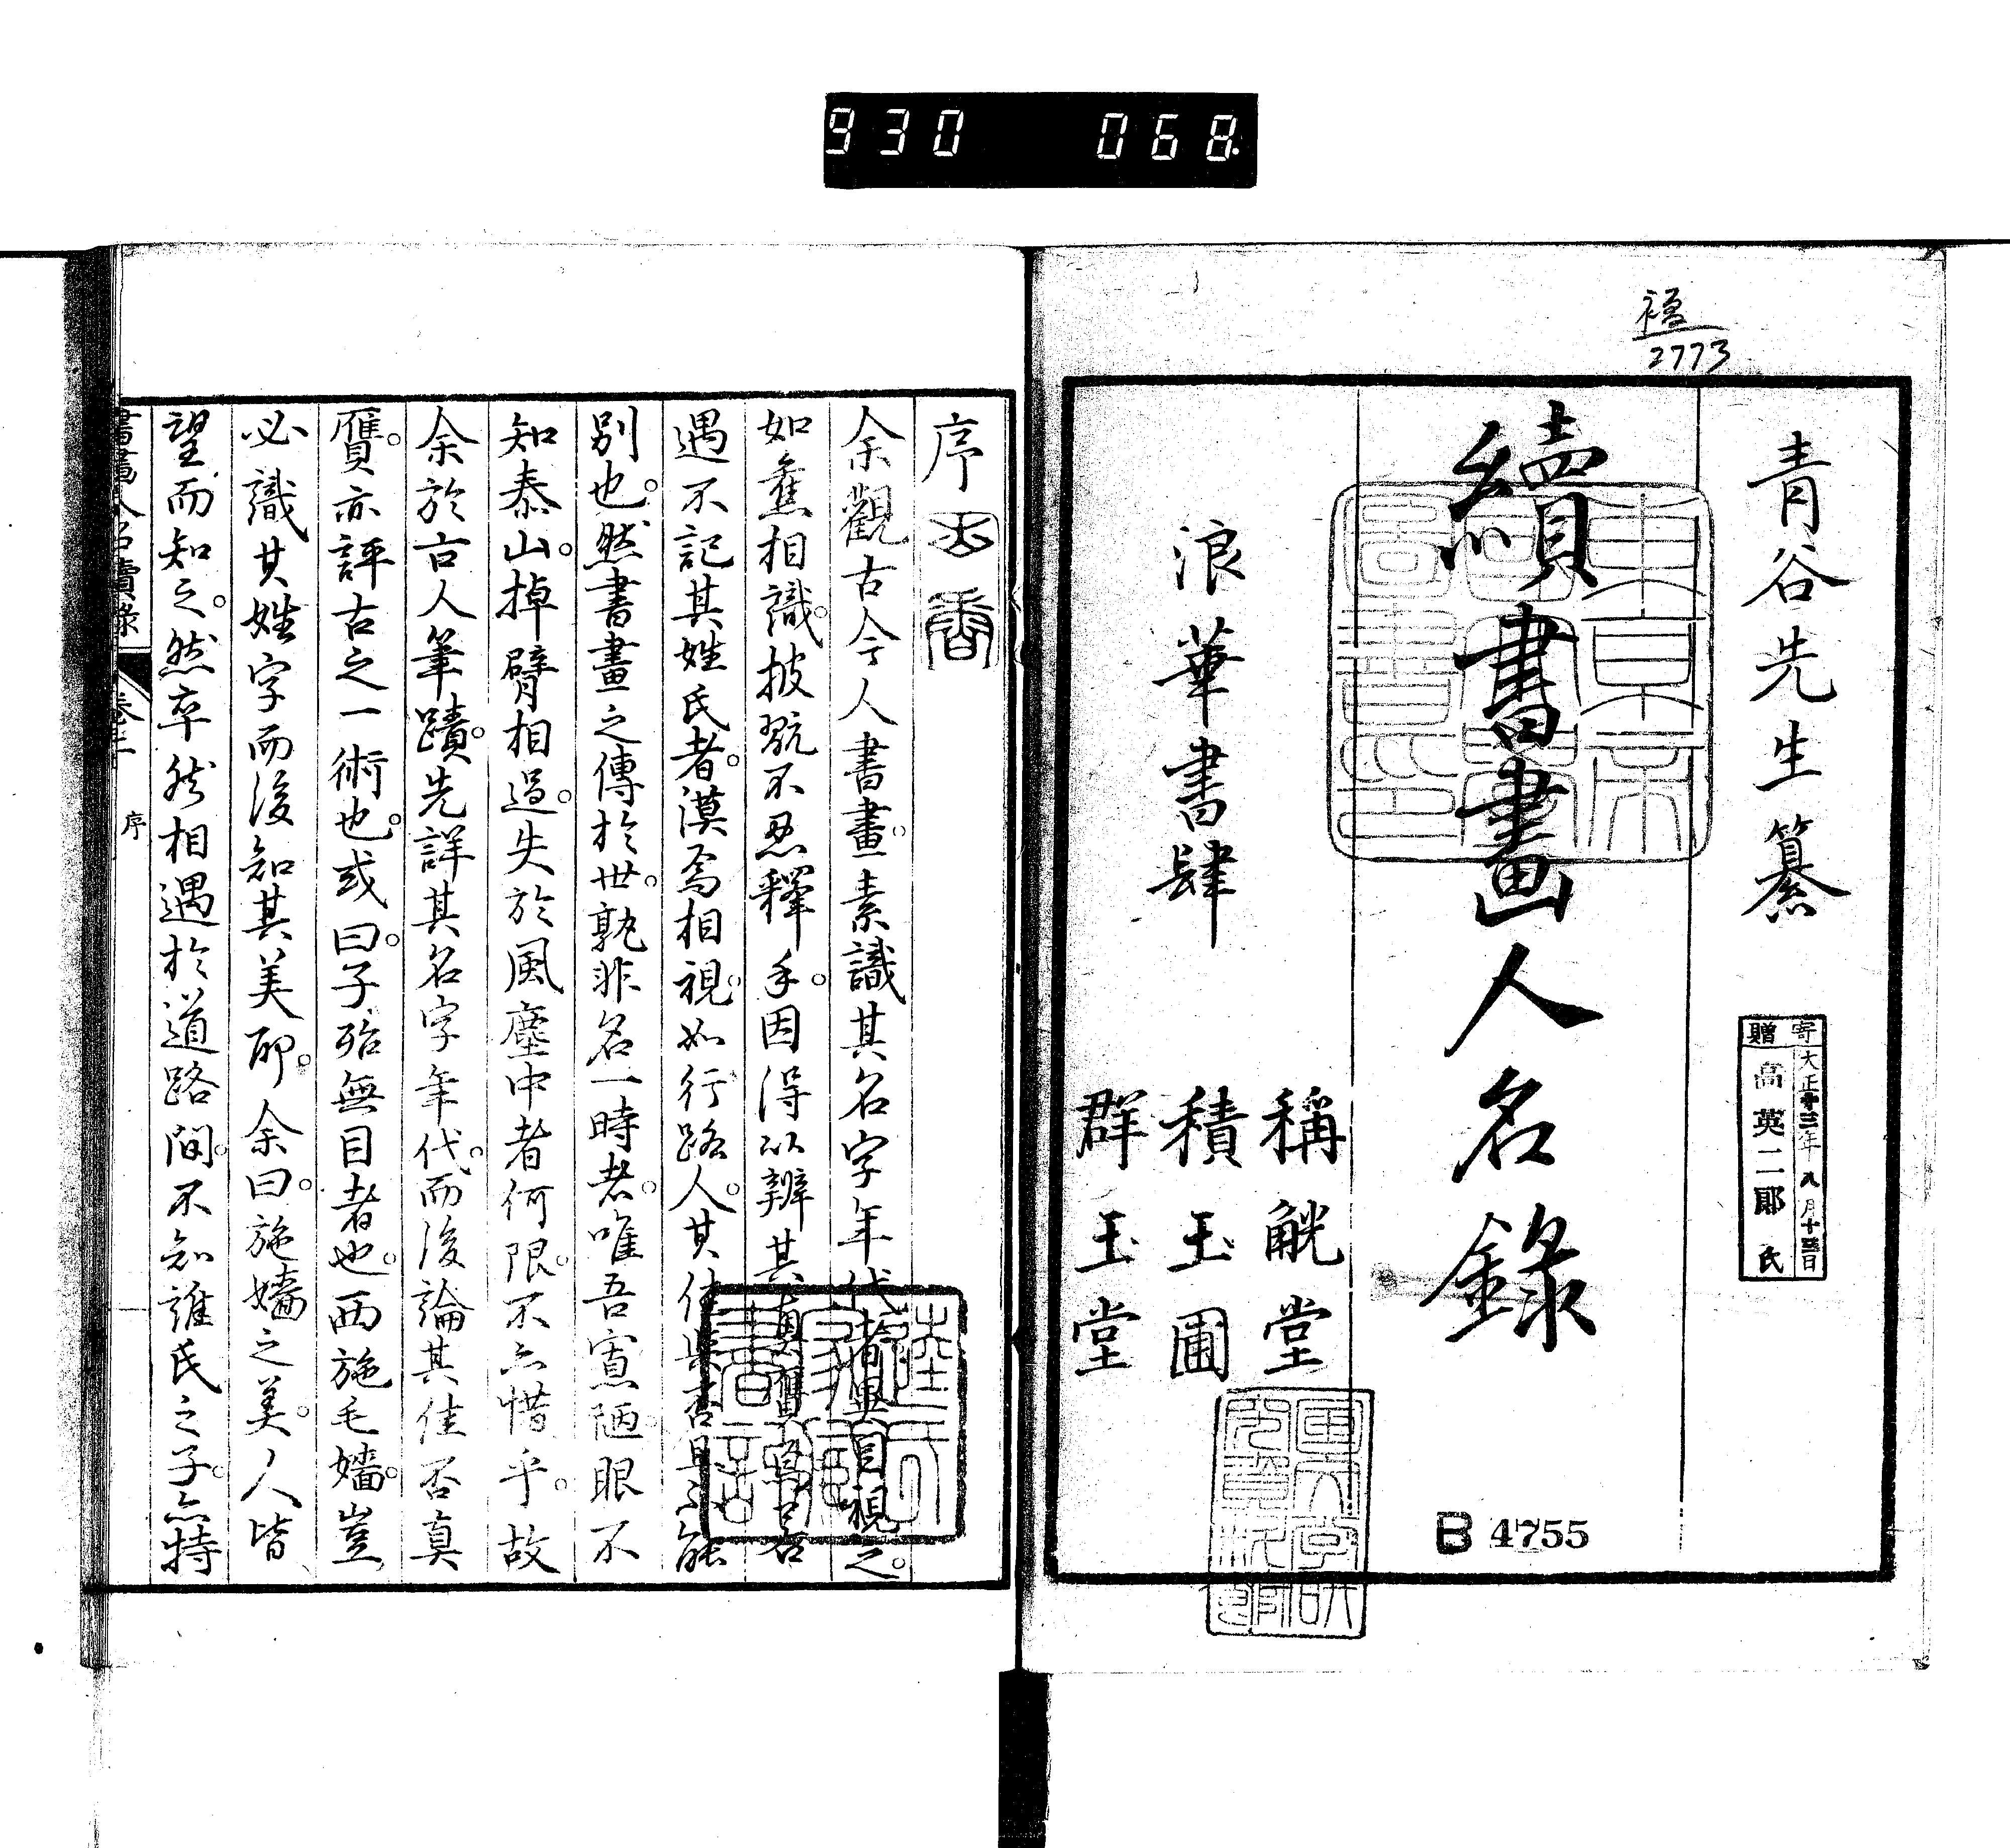 930 068
2773
青谷先生纂
續書畫人名錄
浪華書肆
稱觥堂
積玉圃
群玉堂
寄贈
大正十三年八月十三日
高英二郎氏
東京帝國大學圖書印
B 4755
序
余觀古今人書畫素識其名字年代者與目視之
如舊相識披翫不忍釋手因得以辨其真贋焉若
遇不記其姓氏者漠焉相視如行路人其佳與否且不能
別也然書畫之傳於世孰非名一時者唯吾寡陋眼不
知泰山掉臂相過失於風塵中者何限不亦惜乎故
余於古人筆蹟先詳其名字年代而後論其佳否真
贋亦評古之一術也或曰子殆無目者也西施毛嬙豈
必識其姓字而後知其美耶余曰施嬙之美人皆
望而知之然卒然相遇於道路間不知誰氏之子亦特
書畫人名續錄 序